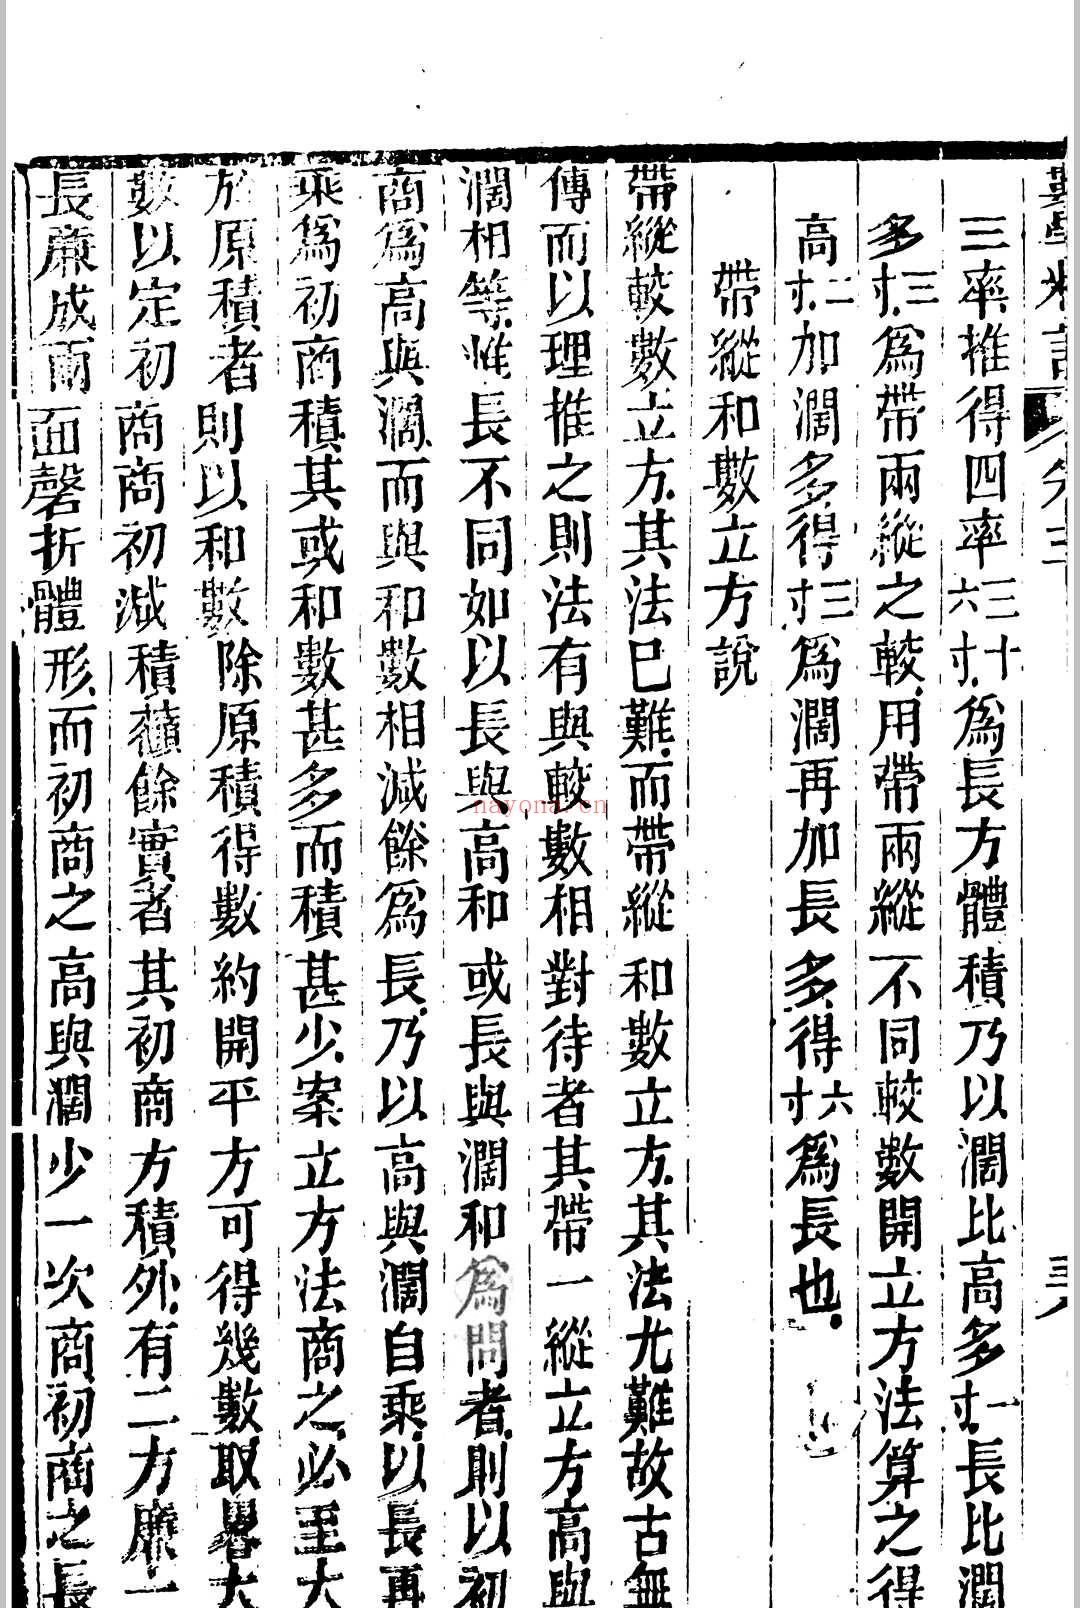 三率推得四率三十六寸爲長方體積乃以濶比高多一寸長比濶
多三寸爲帶兩縱之較用帶兩縱不同較數開立方法算之得
高二寸加濶多得三寸爲濶再加長多得六寸爲長也
帶縱和數立方說
帶縱較數立方其法已難而帶縱和數立方其法尤難故古無
傳而以理推之則法有與較數相對待者其帶一縱立方高與
濶相等惟長不同如以長與高和或長與濶和爲問者則以初
商爲高與濶而與和數相減餘爲長乃以高與濶自乘以長再
乘爲初商積其或和數甚多而積甚少案立方法商之必至大
於原積者則以和數除原積得數約開平方可得幾數取畧大
數以定初商商初減積蘊餘實者其初商方積外有二方廉一
長廉成兩面磬折體形而初商之高與濶少一次商初商之長
nayona.cn